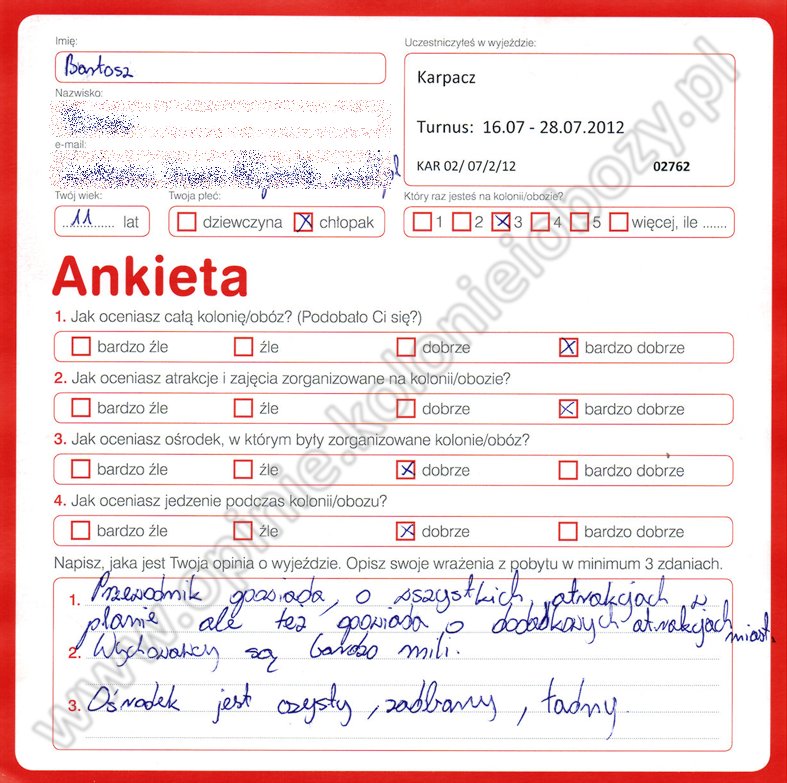 Imię:
Bartosz
Uczestniczyłeś w wyjeździe:
Karpacz
Turnus: 16.07 - 28.07.2012
KAR 02/ 07/2/12 02762
Nazwisko:
e-mail:
Twój wiek:
11 lat
Twoja płeć:
dziewczyna chłopak
Który raz jesteś na kolonii/obozie?
1 2 3 4 5 więcej, ile .......
Ankieta
1. Jak oceniasz całą kolonię/obóz? (Podobało Ci się?)
bardzo źle źle dobrze bardzo dobrze
2. Jak oceniasz atrakcje i zajęcia zorganizowane na kolonii/obozie?
bardzo źle źle dobrze bardzo dobrze
3. Jak oceniasz ośrodek, w którym były zorganizowane kolonie/obóz?
bardzo źle źle dobrze bardzo dobrze
4. Jak oceniasz jedzenie podczas kolonii/obozu?
bardzo źle źle dobrze bardzo dobrze
Napisz, jaka jest Twoja opinia o wyjeździe. Opisz swoje wrażenia z pobytu w minimum 3 zdaniach.
1. Przewodnik opowiada, o wszystkich atrakcjach w
planie ale też opowiada o dodatkowych atrakcjach miast.
2. Wychowawcy są bardzo mili.
3. Ośrodek jest czysty, zadbany, ładny.
www.opinie.kolonieiobozy.pl